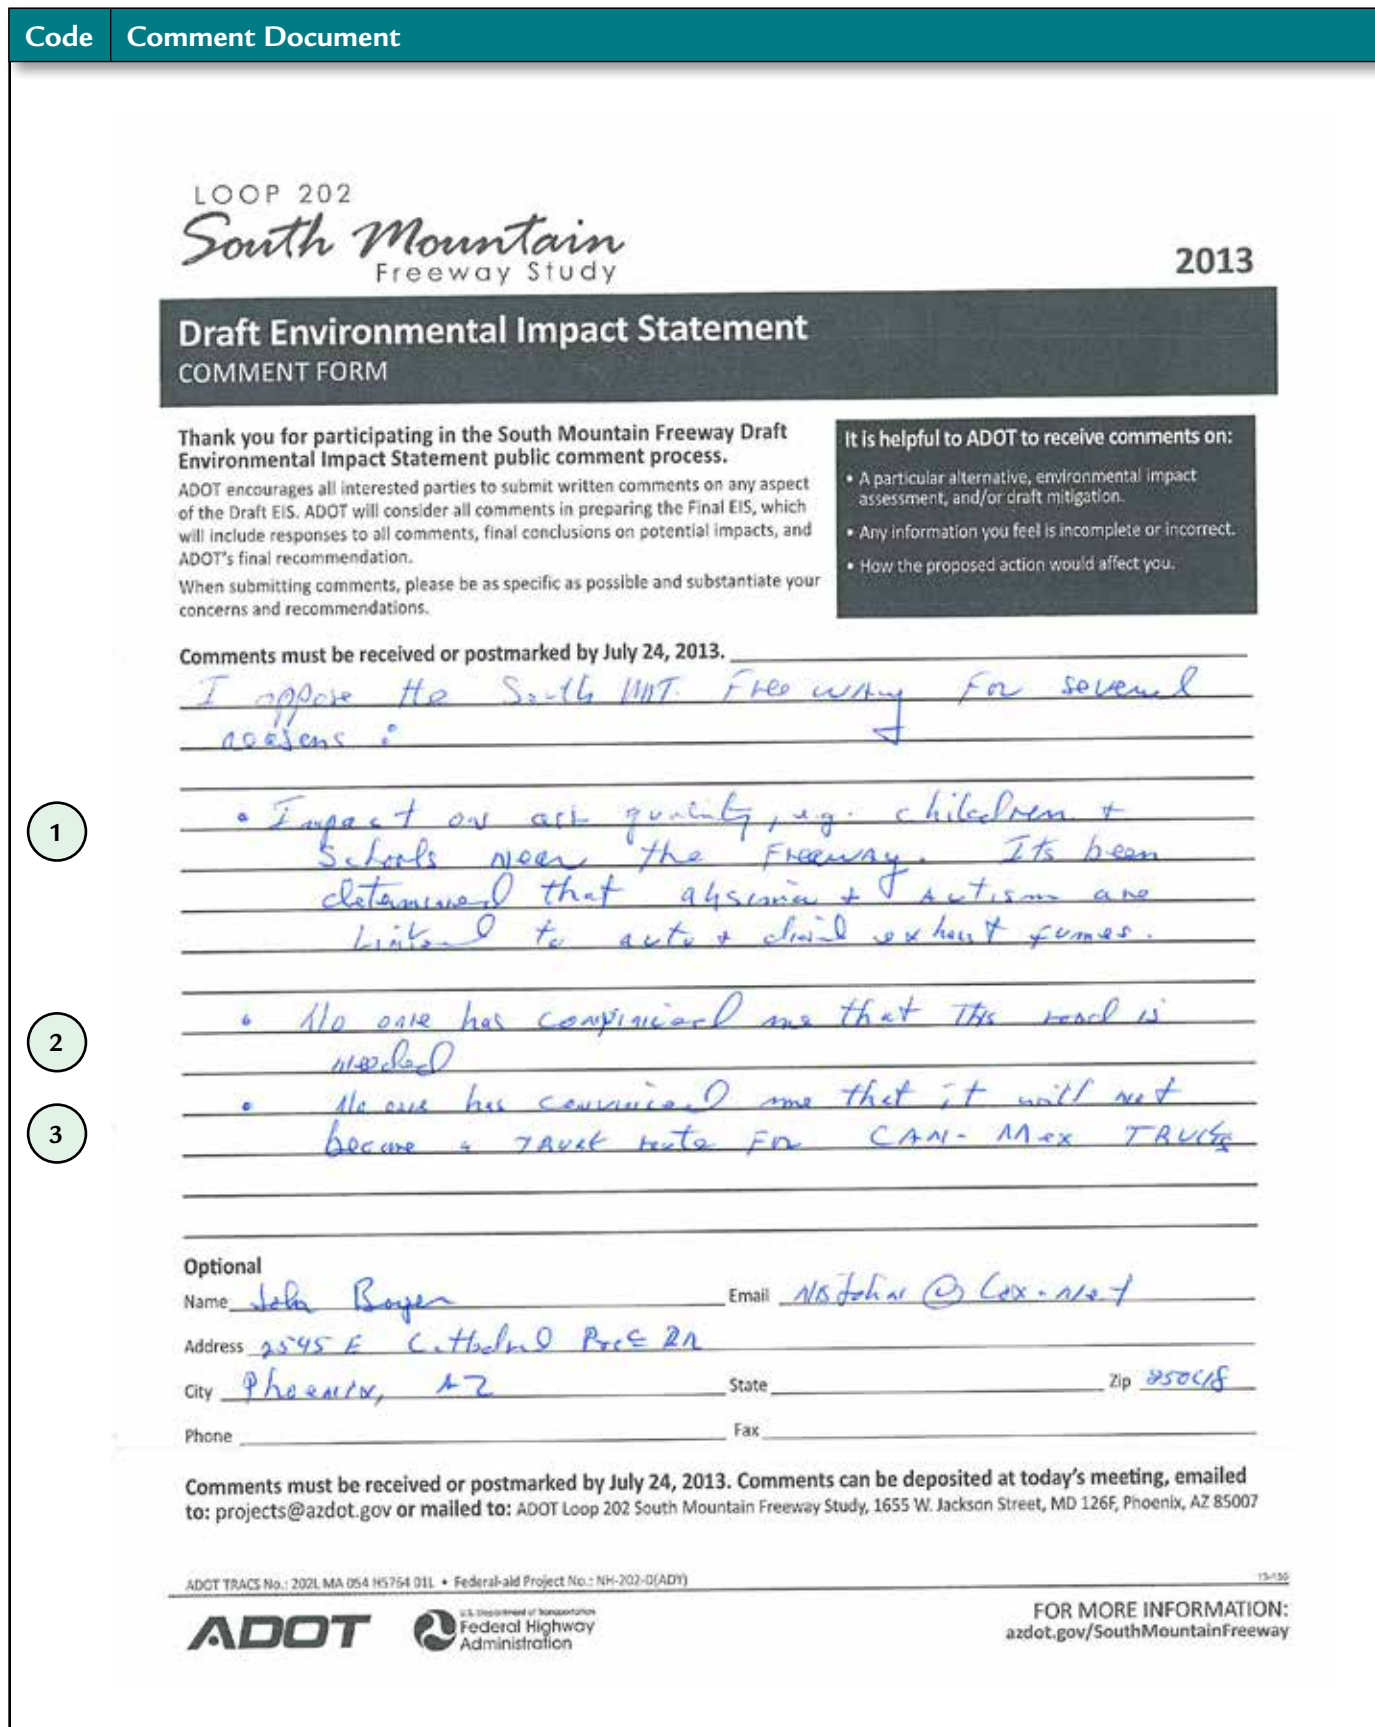 Code Comment Document
LOOP 202
South Mountain
Freeway Study
2013
Draft Environmental Impact Statement
COMMENT FORM
Thank you for participating in the South Mountain Freeway Draft
Environmental Impact Statement public comment process.
ADOT encourages all interested parties to submit written comments on any aspect
of the Draft EIS. ADOT will consider all comments in preparing the Final EIS, which
will include responses to all comments, final conclusions on potential impacts, and
ADOT's final recommendation.
When submitting comments, please be as specific as possible and substantiate your
concerns and recommendations.
It is helpful to ADOT to receive comments on:
• A particular alternative, environmental impact
assessment, and/or draft mitigation.
• Any information you feel is incomplete or incorrect.
• How the proposed action would affect you.
Comments must be received or postmarked by July 24, 2013.
I oppose the South MNT. Freeway for several
reasons :
1
• Impact on air quality, e.g. children +
Schools near the Freeway. Its been
determined that + Autism are
Linked to auto + exhaust fumes.
2
• No one has convinced me that this road is
needed
3
• No one has convinced me that it will not
become a route For CAN-Mex TRUCKS
Optional
Name John Boyer Email @ Cox.net
Address 2545 E Cathedral Rock DR
City Phoenix, AZ State Zip 85048
Phone Fax
Comments must be received or postmarked by July 24, 2013. Comments can be deposited at today's meeting, emailed
to: projects@azdot.gov or mailed to: ADOT Loop 202 South Mountain Freeway Study, 1655 W. Jackson Street, MD 126F, Phoenix, AZ 85007
ADOT TRACS No.: 202L MA 054 H5764 01L • Federal-aid Project No.: NH-202-D(ADY)
ADOT
U.S. Department of Transportation
Federal Highway
Administration
FOR MORE INFORMATION:
azdot.gov/SouthMountainFreeway